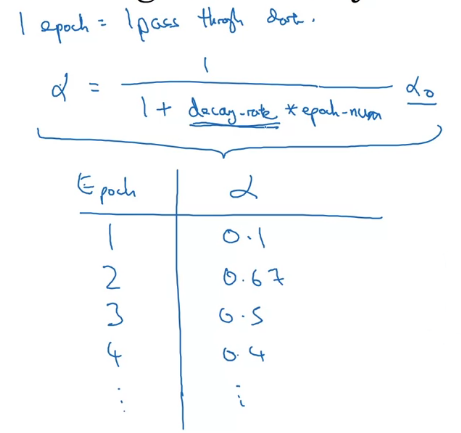 1 epoch = 1 pass through data.
α = 1 / (1 + decay-rate * epoch-num) α₀
Epoch | α
1 | 0.1
2 | 0.67
3 | 0.5
4 | 0.4
⋮ | ⋮